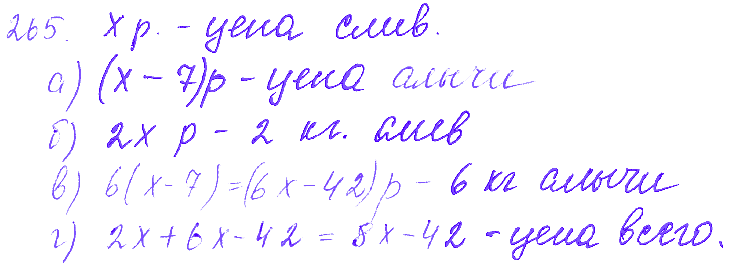 265. x р. - цена слив.
а) (x - 7)р - цена алычи
б) 2x р - 2 кг. слив
в) 6(x-7)=(6x-42)р - 6 кг алычи
г) 2x+6x-42 = 8x-42 - цена всего.